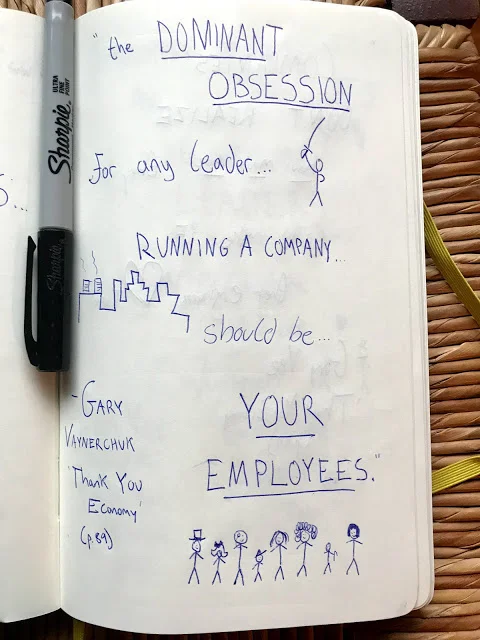 "the DOMINANT
OBSESSION
for any leader...
RUNNING A COMPANY...
should be...
YOUR
EMPLOYEES."
- GARY
VAYNERCHUK
'Thank You
Economy'
(p.89)
Sharpie
ULTRA
FINE
POINT
Sharpie